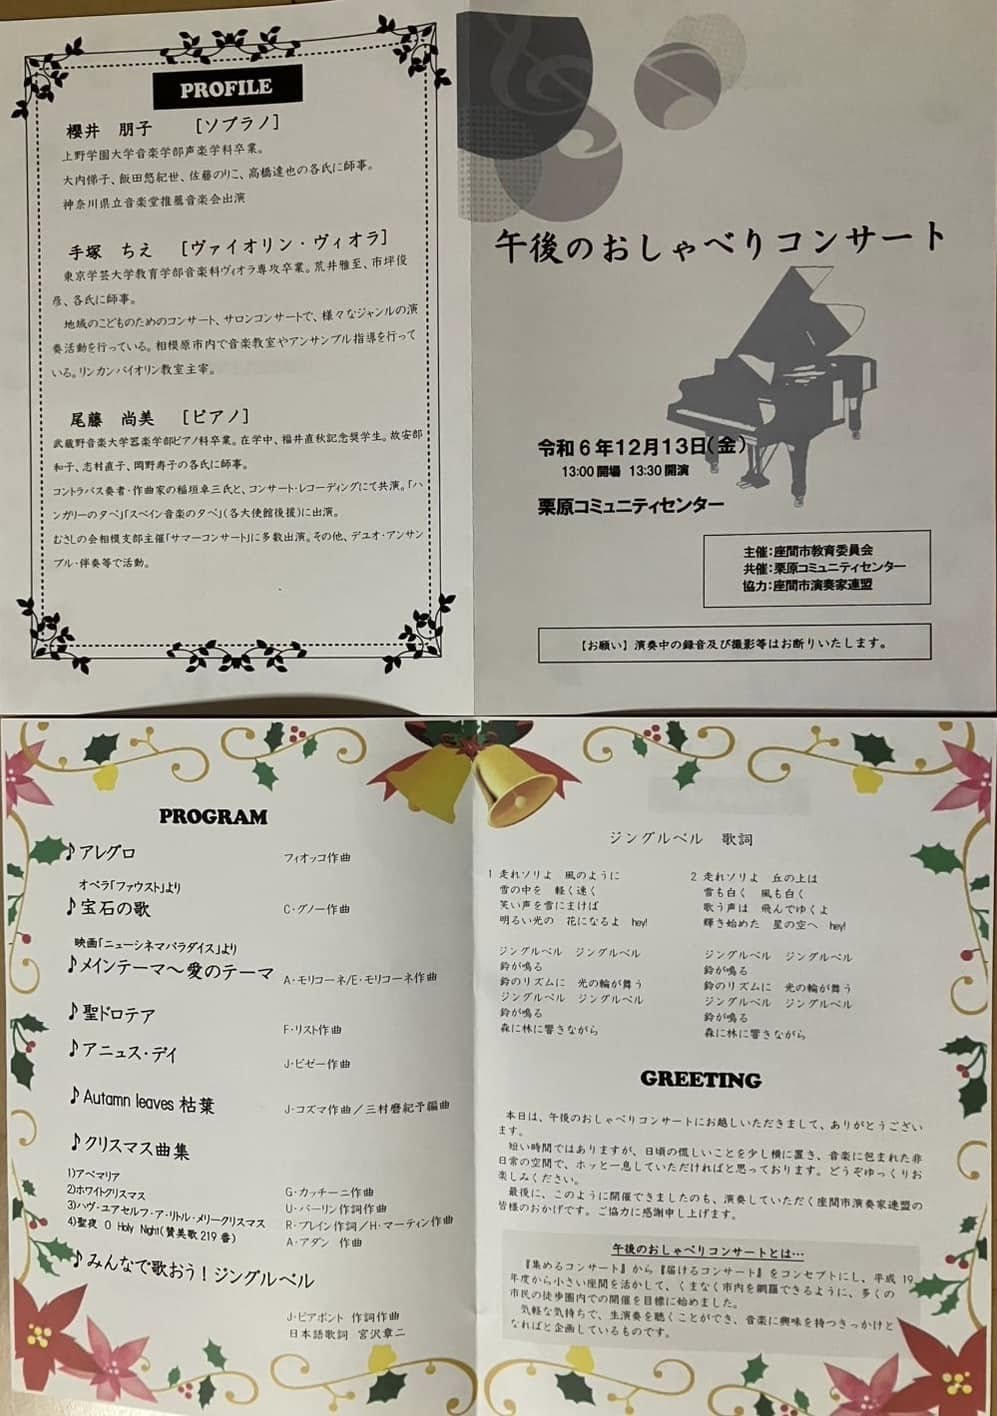 PROFILE
櫻井 朋子 [ソプラノ]
上野学園大学音楽学部声楽学科卒業。
大内悌子、飯田悠紀世、佐藤のりこ、高橋達也の各氏に師事。
神奈川県立音楽堂推薦音楽会出演
手塚 ちえ [ヴァイオリン・ヴィオラ]
東京学芸大学教育学部音楽科ヴィオラ専攻卒業。荒井雅至、市坪俊
彦、各氏に師事。
地域のこどものためのコンサート、サロンコンサートで、様々なジャンルの演
奏活動を行っている。相模原市内で音楽教室やアンサンブル指導を行って
いる。リンカンバイオリン教室主宰。
尾藤 尚美 [ピアノ]
武蔵野音楽大学器楽学部ピアノ科卒業。在学中、福井直秋記念奨学生。故安部
和子、志村直子、岡野寿子の各氏に師事。
コントラバス奏者・作曲家の稲垣卓三氏と、コンサート・レコーディングにて共演。「ハ
ンガリーの夕べ」「スペイン音楽の夕べ」(各大使館後援)に出演。
むさしの会相模支部主催「サマーコンサート」に多数出演。その他、デュオ・アンサン
ブル・伴奏等で活動。
午後のおしゃべりコンサート
令和6年12月13日(金)
13:00開場 13:30開演
栗原コミュニティセンター
主催:座間市教育委員会
共催:栗原コミュニティセンター
協力:座間市演奏家連盟
【お願い】演奏中の録音及び撮影等はお断りいたします。
PROGRAM
♪アレグロ フィオッコ作曲
オペラ「ファウスト」より
♪宝石の歌 C・グノー作曲
映画「ニューシネマパラダイス」より
♪メインテーマ〜愛のテーマ A・モリコーネ/E・モリコーネ作曲
♪聖ドロテア F・リスト作曲
♪アニュス・デイ J・ビゼー作曲
♪Autamn leaves 枯葉 J・コズマ作曲/三村磨紀予編曲
♪クリスマス曲集
1)アベマリア G・カッチーニ作曲
2)ホワイトクリスマス U・バーリン作詞作曲
3)ハヴ・ユアセルフ・ア・リトル・メリークリスマス R・ブレイン作詞/H・マーティン作曲
4)聖夜 O Holy Night(賛美歌219番) A・アダン 作曲
♪みんなで歌おう!ジングルベル
J・ピアポント 作詞作曲
日本語歌詞 宮沢章二
ジングルベル 歌詞
1 走れソリよ 風のように
雪の中を 軽く速く
笑い声を雪にまけば
明るい光の 花になるよ hey!
ジングルベル ジングルベル
鈴が鳴る
鈴のリズムに 光の輪が舞う
ジングルベル ジングルベル
鈴が鳴る
森に林に響きながら
2 走れソリよ 丘の上は
雪も白く 風も白く
歌う声は 飛んでゆくよ
輝き始めた 星の空へ hey!
ジングルベル ジングルベル
鈴が鳴る
鈴のリズムに 光の輪が舞う
ジングルベル ジングルベル
鈴が鳴る
森に林に響きながら
GREETING
本日は、午後のおしゃべりコンサートにお越しいただきまして、ありがとうござい
ます。
短い時間ではありますが、日頃の慌しいことを少し横に置き、音楽に包まれた非
日常の空間で、ホッと一息していただければと思っております。どうぞゆっくりお
楽しみください。
最後に、このように開催できましたのも、演奏していただく座間市演奏家連盟の
皆様のおかげです。ご協力に感謝申し上げます。
午後のおしゃべりコンサートとは…
『集めるコンサート』から『届けるコンサート』をコンセプトにし、平成19
年度から小さい座間を活かして、くまなく市内を網羅できるように、多くの
市民の徒歩圏内での開催を目標に始めました。
気軽な気持ちで、生演奏を聴くことができ、音楽に興味を持つきっかけと
なればと企画しているものです。